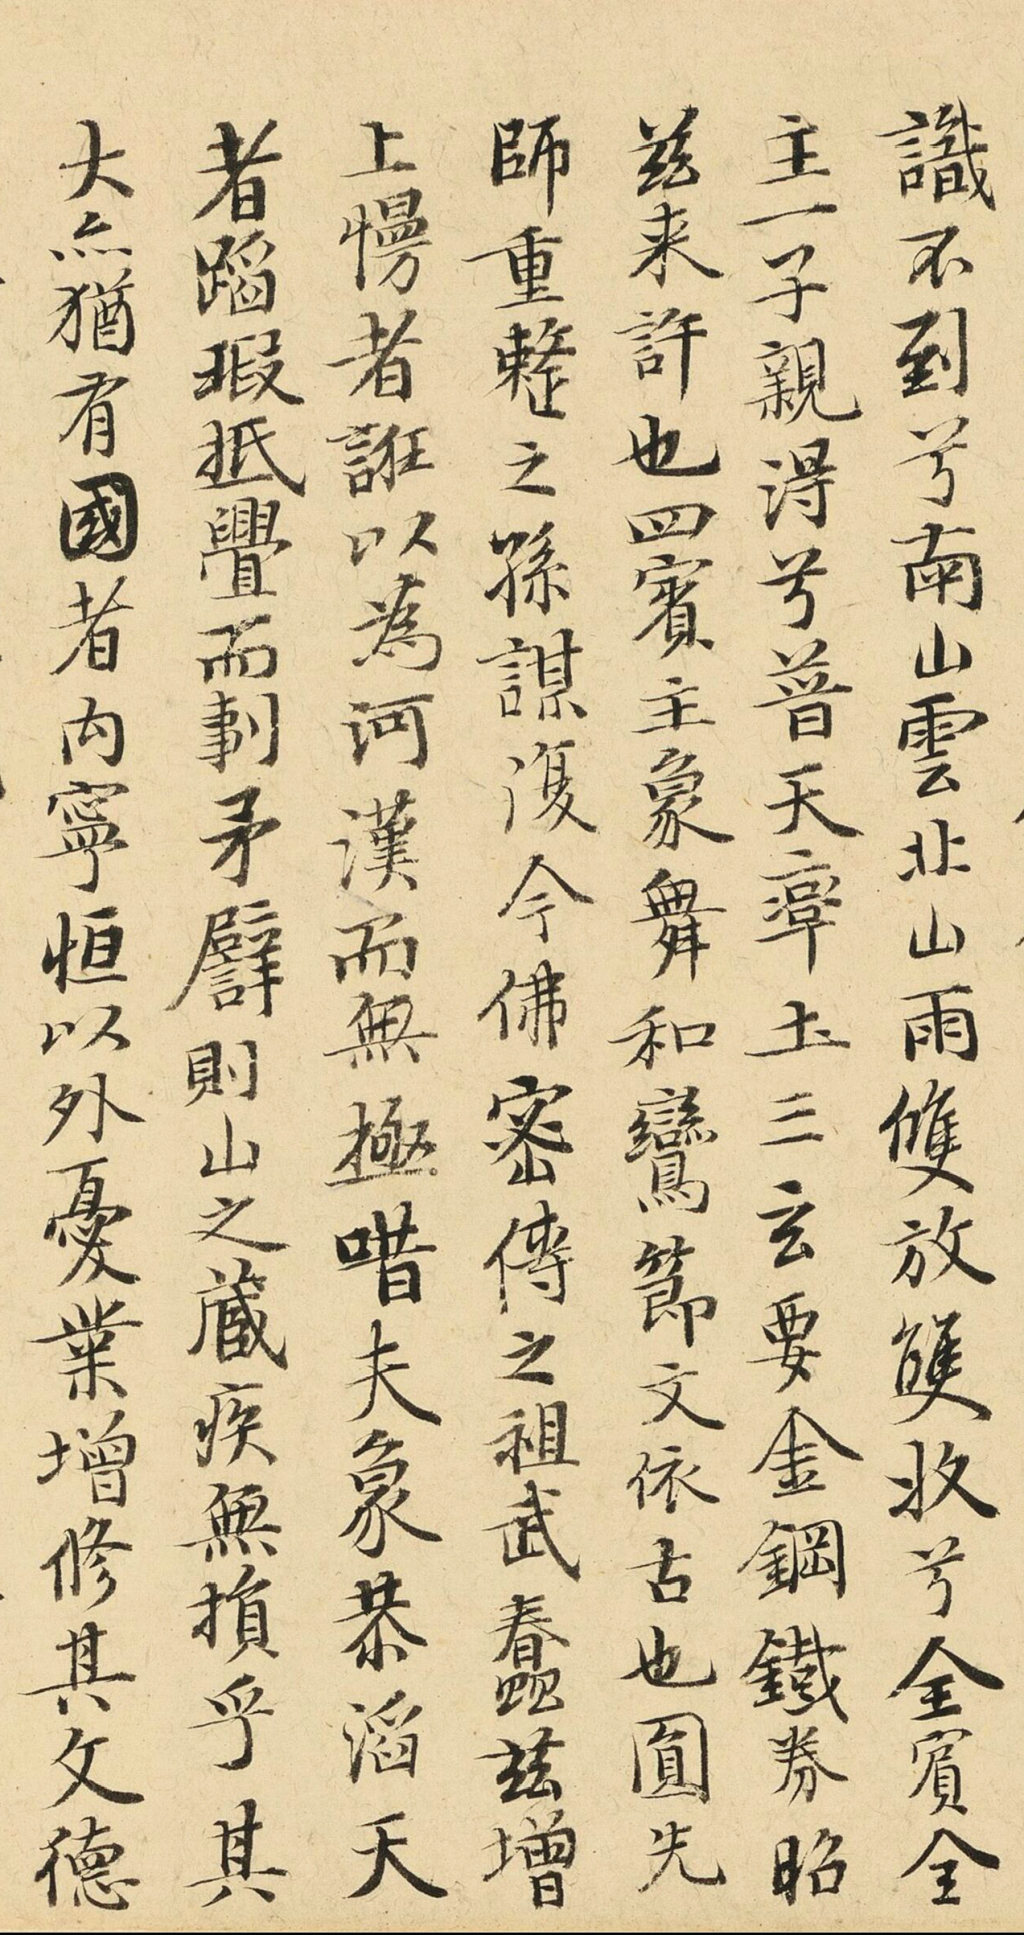 識不到兮南山雲北山雨雙放雙收兮全賓全
主一子親得兮普天率土三玄要金鋼鐵券昭
茲来許也四賓主象舞和鸞節文依古也圓先
師重整之孫謀復今佛密傳之祖武蠢茲增
上慢者誑以為河漢而無極唶夫象恭滔天
者蹈瑕抵舋而剚矛譬則山之蔵疾無損乎其
大亦猶有國者内寧恒以外憂業增修其文德